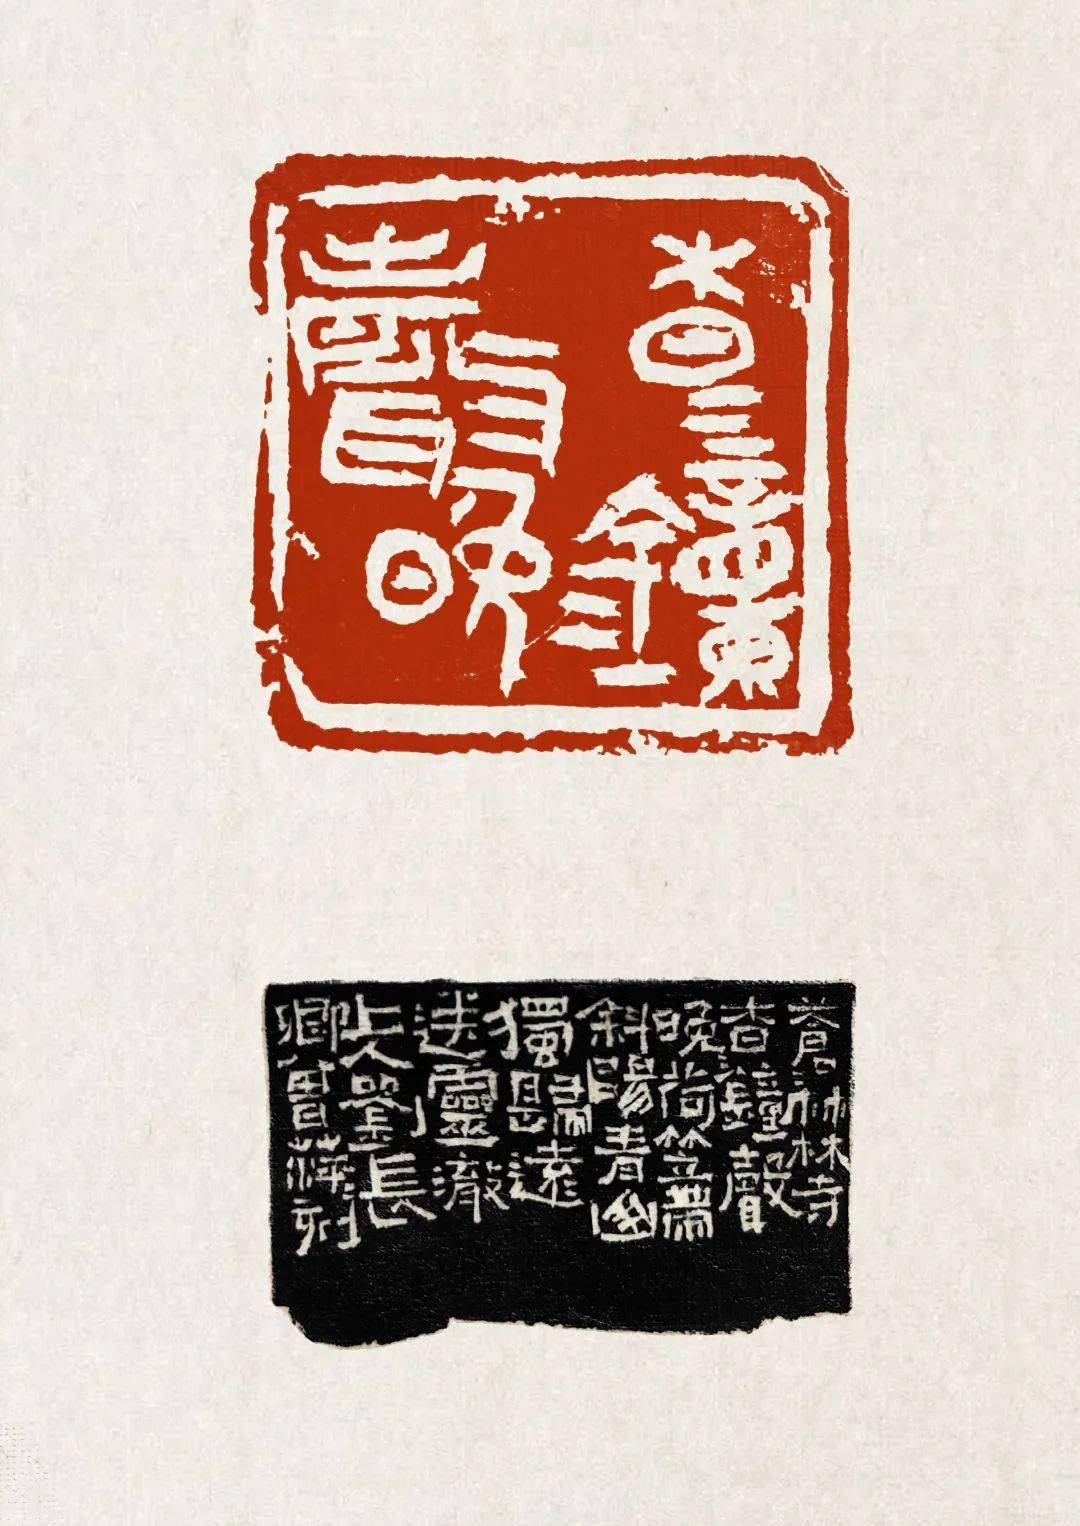 杳=鐘
聲晚
蒼=竹林寺
杳=鐘聲
晚荷笠帶
斜陽青山
獨歸遠
送靈澈
上人劉長
卿
刻